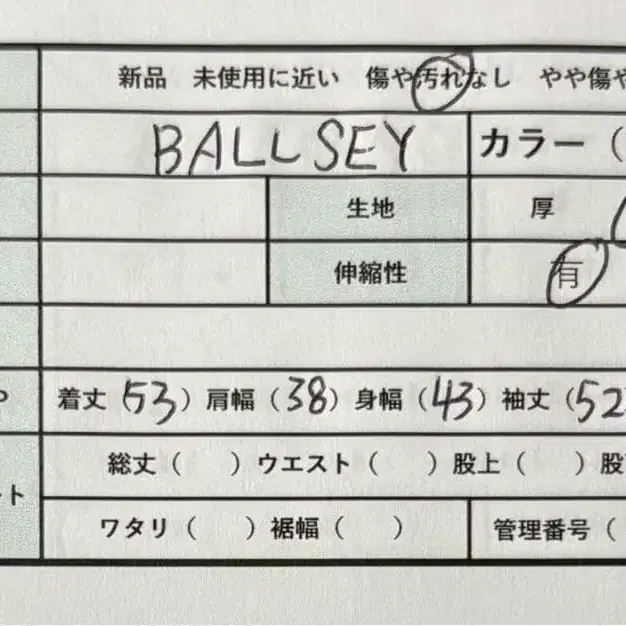 新品 未使用に近い 傷や汚れなし やや傷や
BALLSEY カラー（
生地 厚
伸縮性 有
着丈（53）肩幅（38）身幅（43）袖丈（52
総丈（ ）ウエスト（ ）股上（ ）股
ット
ワタリ（ ）裾幅（ ） 管理番号（